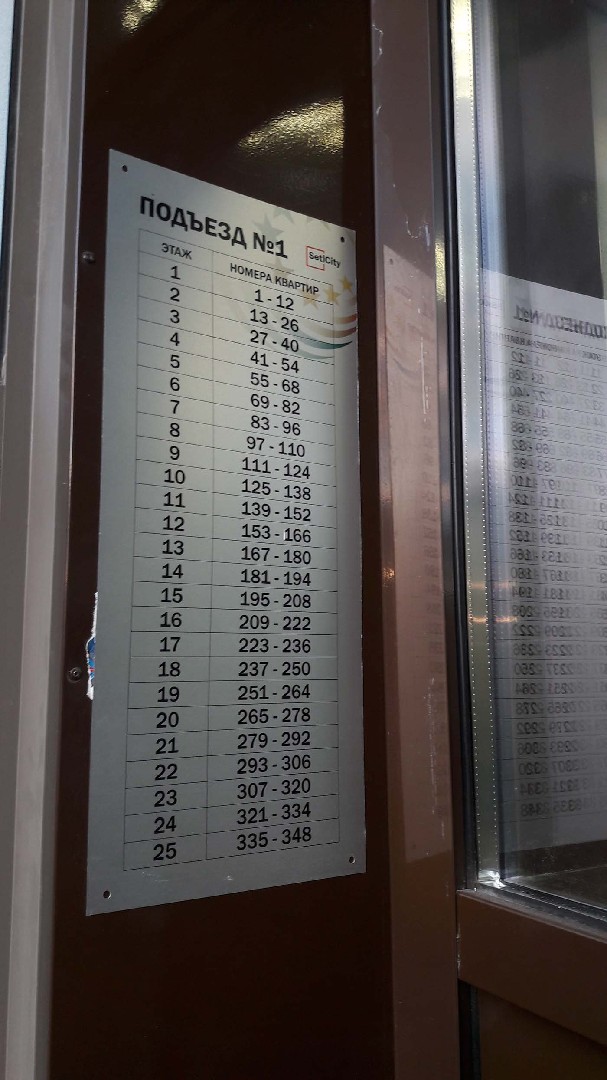 ПОДЪЕЗД №1
SetlCity
ЭТАЖ НОМЕРА КВАРТИР
1 1 - 12
2 13 - 26
3 27 - 40
4 41 - 54
5 55 - 68
6 69 - 82
7 83 - 96
8 97 - 110
9 111 - 124
10 125 - 138
11 139 - 152
12 153 - 166
13 167 - 180
14 181 - 194
15 195 - 208
16 209 - 222
17 223 - 236
18 237 - 250
19 251 - 264
20 265 - 278
21 279 - 292
22 293 - 306
23 307 - 320
24 321 - 334
25 335 - 348